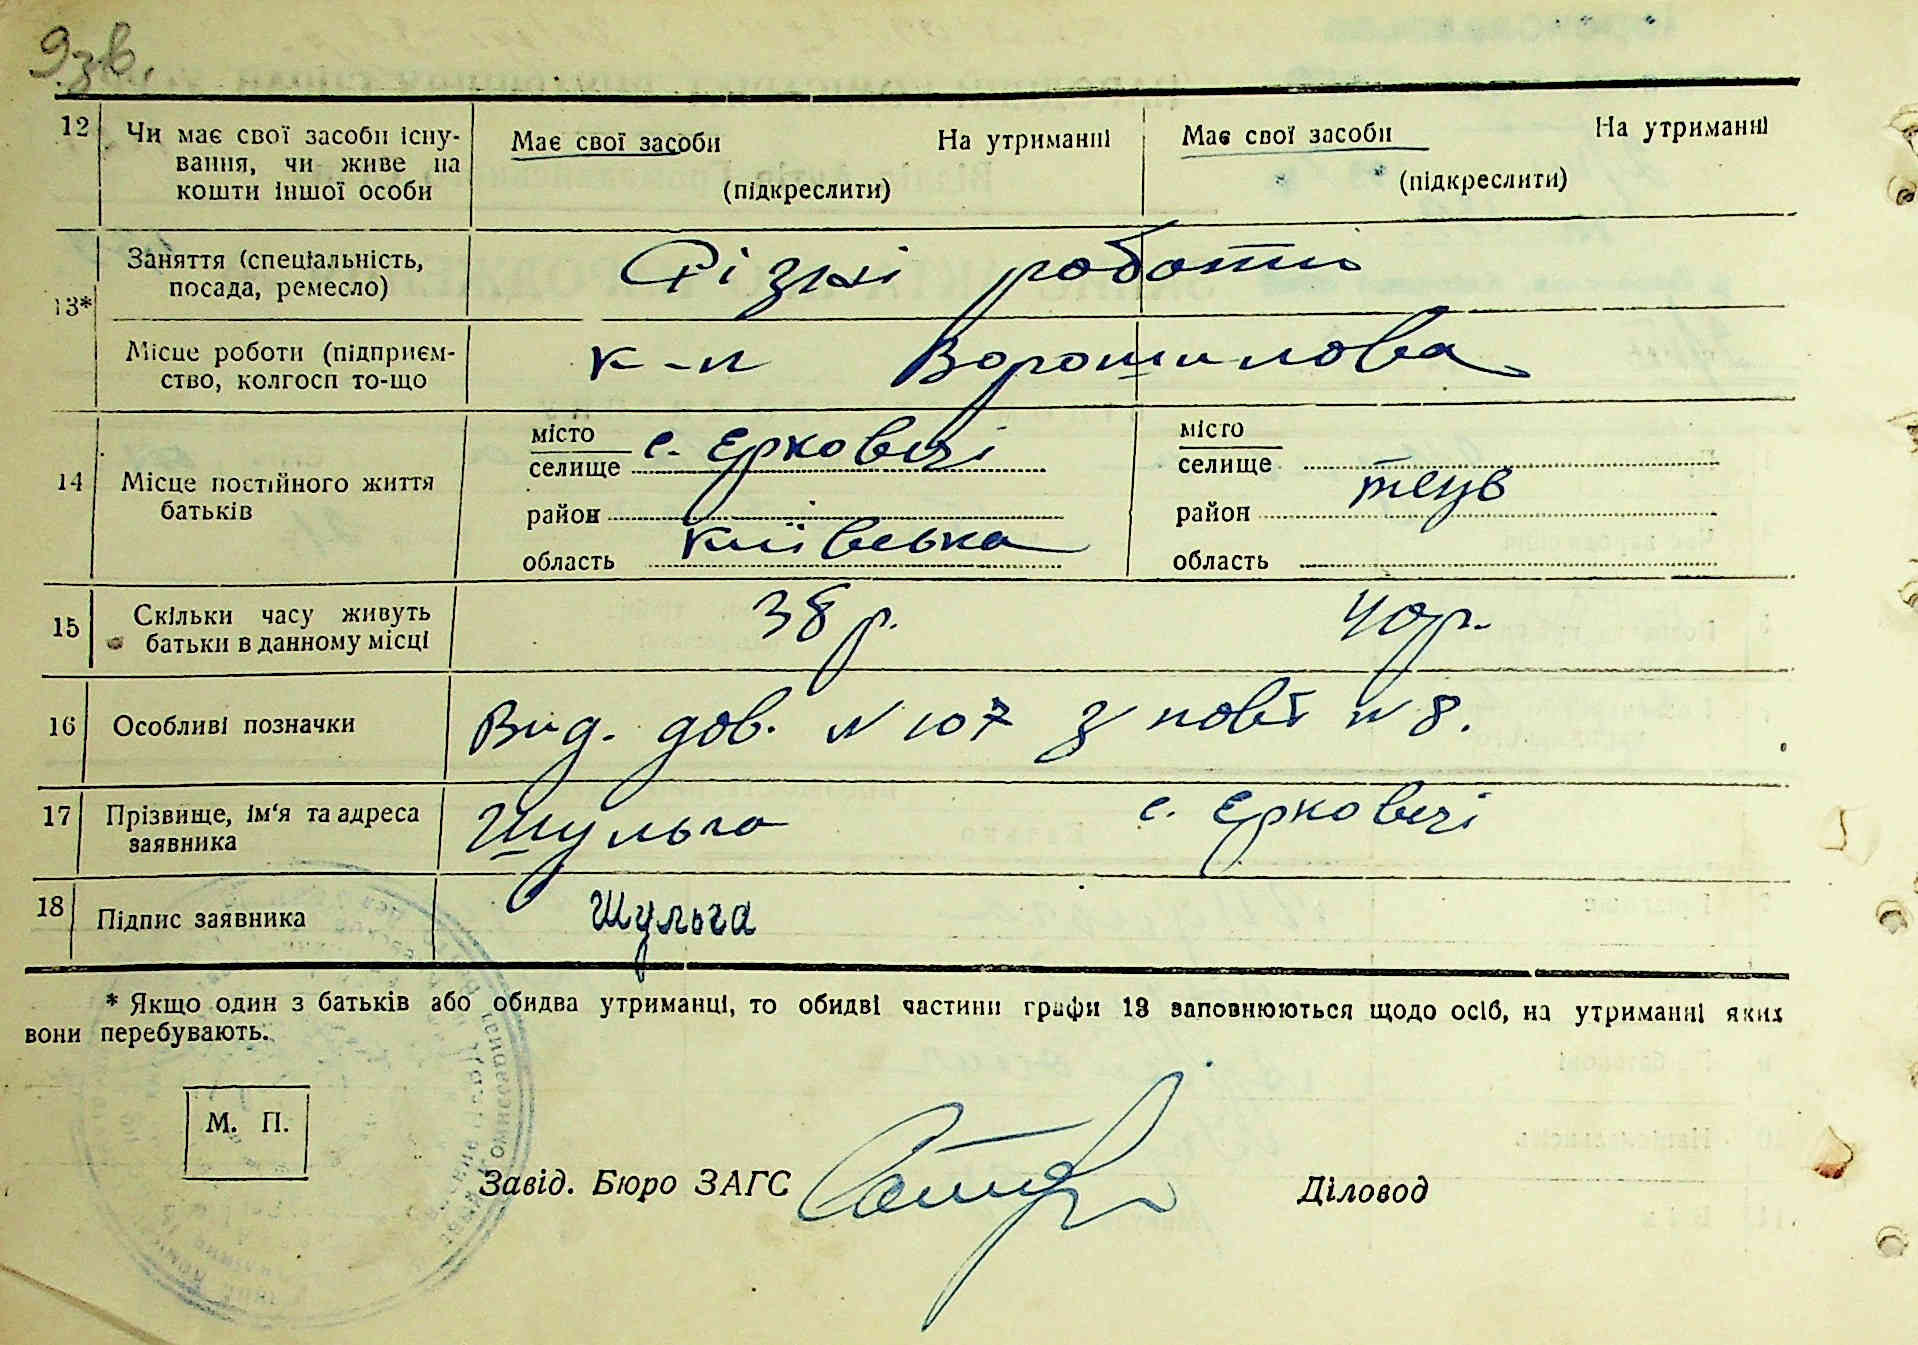 9зв.
12 Чи має свої засоби існу- Має свої засоби На утриманні Має свої засоби На утриманні
вання, чи живе на
кошти іншої особи (підкреслити) (підкреслити)
13* Заняття (спеціальність, Різні роботи
посада, ремесло)
Місце роботи (підприєм- к-п Ворошилова
ство, колгосп то-що
14 Місце постійного життя батьків
місто с. Єрковеці місто
селище селище
район район тецв
область київська область
15 Скільки часу живуть 38 р. 40 р.
батьки в данному місці
16 Особливі позначки Вид. дов. N 107 з повт N 8.
17 Прізвище, ім'я та адреса Шульга с. Єрковеці
заявника
18 Підпис заявника Шульга
* Якщо один з батьків або обидва утриманці, то обидві частини графи 13 заповнюються щодо осіб, на утриманні яких
вони перебувають.
М. П.
Завід. Бюро ЗАГС Діловод